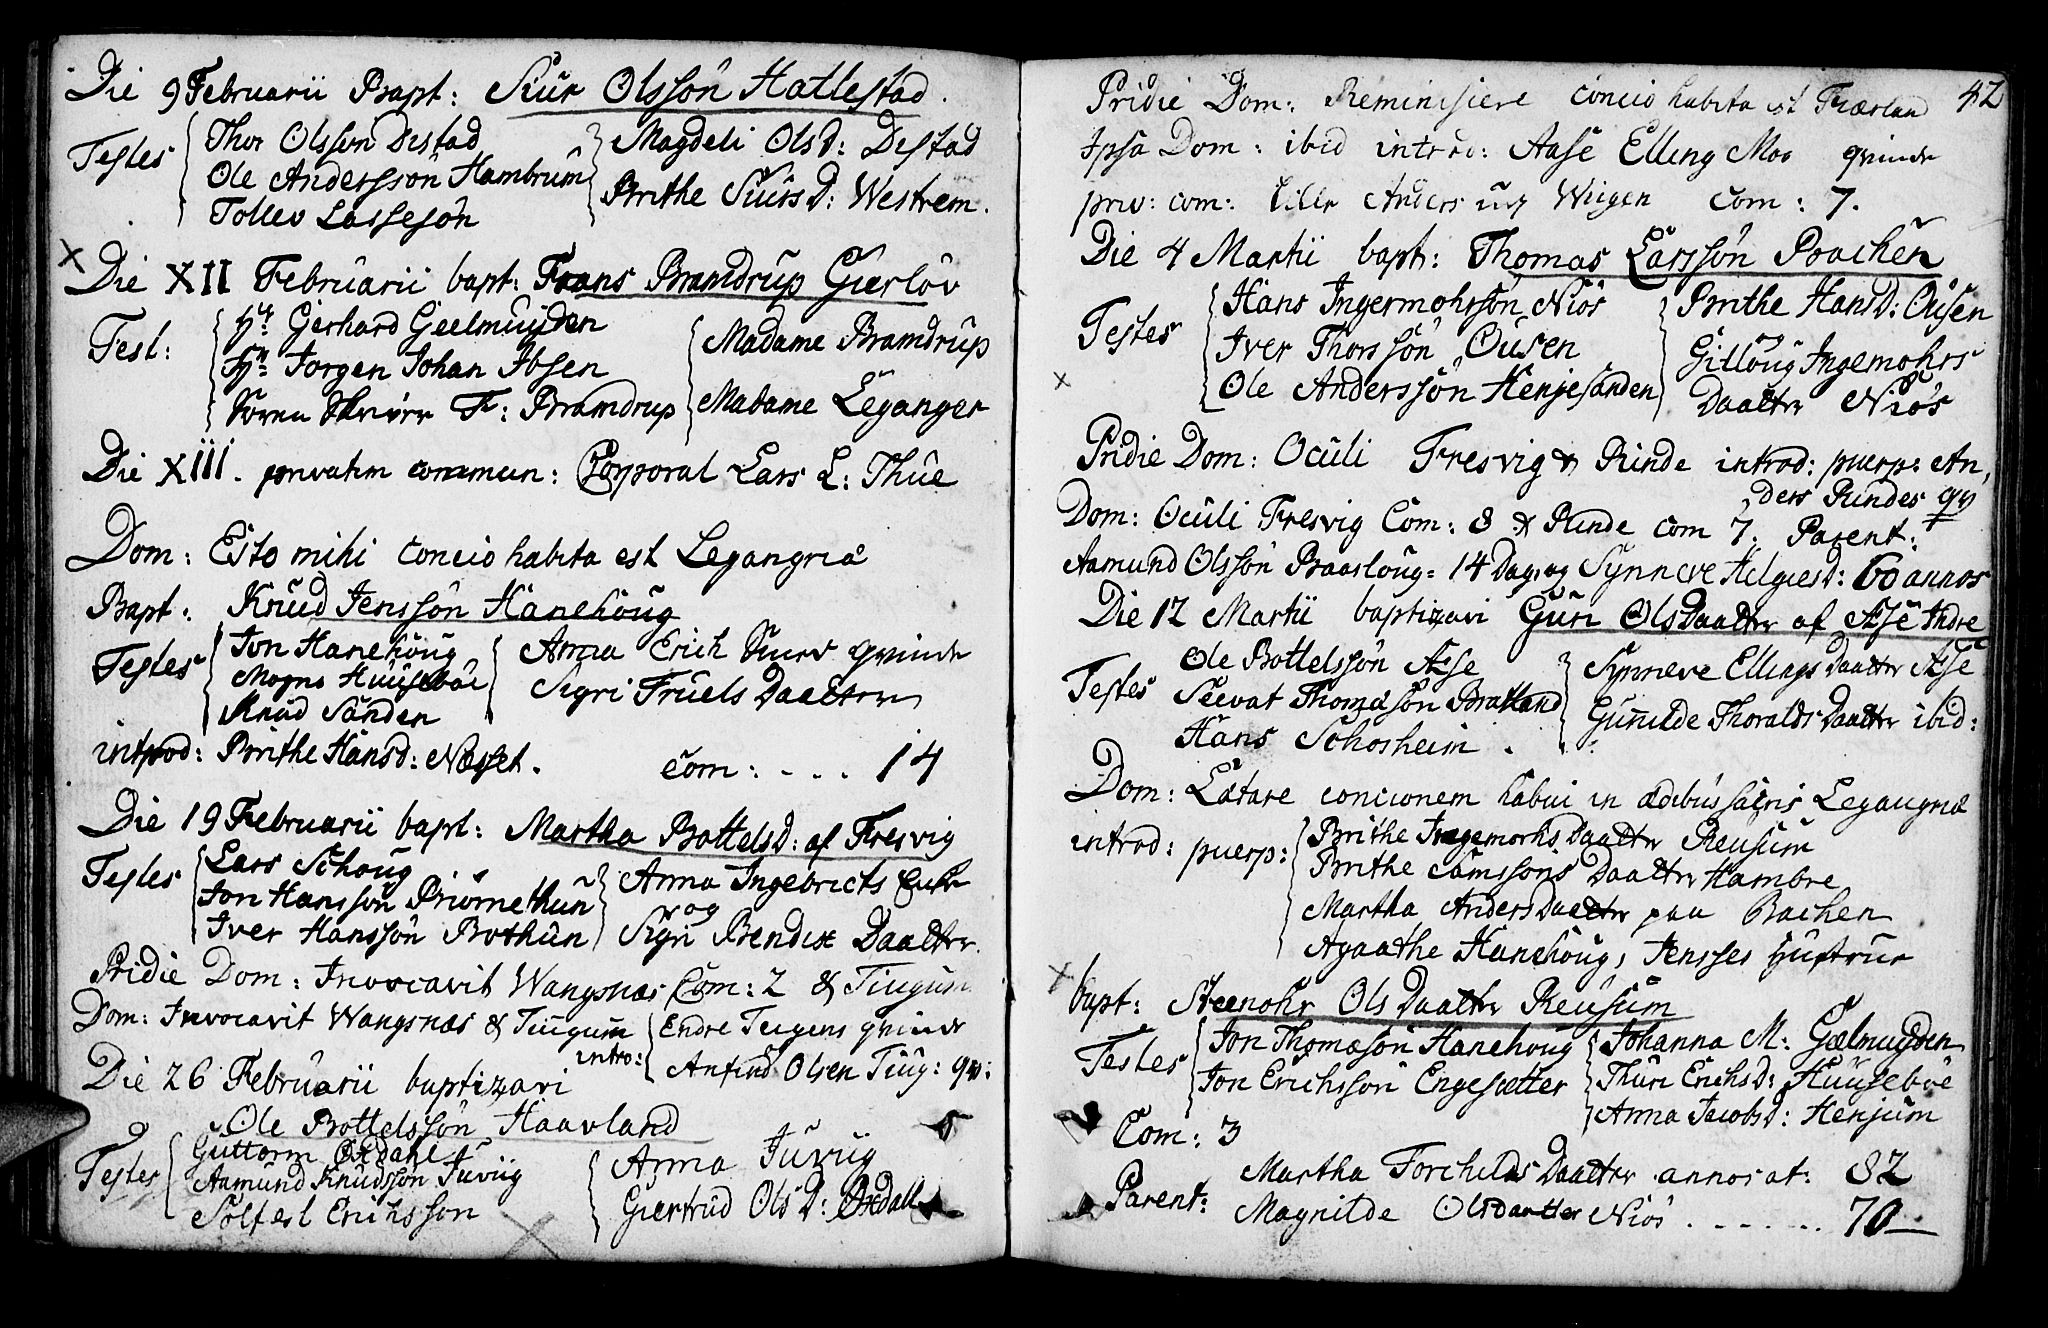 Die 9 Februarii Bapt: Siur Olssön Hatlestad.
Testes
Thor Olsson Destad
Ole Anderssön Hambrum
Tollev Lassesön
Magdeli Olsd: Destad
Brithe Siursd: Westrem.
Die XII Februarii bapt: Frans Bramdrup Gierlöv
Test:
Hr: Gerhard Geelmuyden
Hr: Jorgen Johan Ibsen
Soren Skriver F: Bramdrup
Madame Bramdrup
Madame Leganger
Die XIII. privatim commun: Corporal Lars L: Thue
Dom: Esto mihi concio habita est Legangriæ
Bapt: Knud Jenssön Hanehöug
Testes
Jon Hanehöug
Mogns Huuseböe
Knud Sanden
Anna Erich qvinde
Sigri Truels Daatter
introd: Brithe Hansd: Næsset. com: . . . 14
Die 19 Februarii bapt: Martha Bottelsd: af Fresvig
Testes
Lars Schoug
Jon Hanssön Priömethun
Iver Hanssön Bothun
Anna Ingebricts
og
Sigri Bendix Daatter.
Pridie Dom: Invocavit Wangsnæs Com: 2 & Tiugum
Dom: Invocavit Wangsnæs & Tiugum
intro:
Endre Teigens qvinde
Anfind Olsen Tiug: qv:
Die 26 Februarii baptizavi
Ole Bottelssön Haavland
Testes
Guttorm Oxdahl
Aamund Knudssön Juviig
Solfest Erichsson
Anna Juviig
Giertrud Ols D: Oxdall
42
Pridie Dom: Reminisiere concio habita est Fiærland
Ipsa Dom: ibid introd: Aase Elling Moe qvinde
priv: com: lille Anders Wiigen Com: 7.
Die 4 Martii bapt: Thomas Larssön Baachen
Testes
Hans Ingermohrssön Niös
Iver Thorssön Ousen
Ole Anderssön Henjesanden
Brithe Hansd: Ousen
Gitlöug Ingemohrs
Daatter Niös
Pridie Dom: Oculi Fresvig & Rinde introd: puerp: An,
ders Rindes qv
Dom: Oculi Fresvig Com: 8 & Rinde com 7. Parent:
Aamund Olssön Braasloug= 14 Dag, og Synneve Helgiesd: 60 annos
Die 12 Martii baptizavi Guri OlsDaatter af Ase Indre
Testes
Ole Bottelssön Ase
Seevat Thomæsön Brattland
Hans Schosheim.
Synneve Ellings Daatter Ase
Gunilde Thoralds Daatter ibid:
Dom: Lætare concionem habui in ædibus sacris Legangriæ
introd: puerp:
Brithe Ingemorhs Daatter Reusum
Brithe Samssons Daatter Hambre
Martha Anders Daatter paa Bachen
Agaathe Hanehöug, Jensses Hustrue
bapt: Steenohr Ols Daatter Reusum
Testes
Jon Thomæsön Hanehoug
Jon Erichsson Engesætter
Johanna M: Gælmuyden
Thuri Erichsd: Huuseböe
Anna Jacobsd: Henjum
Com: 3
Parent:
Martha Torchilds Daatter annos at: 82
Magnilde Olsdaatter Niös . . . . . . . 70